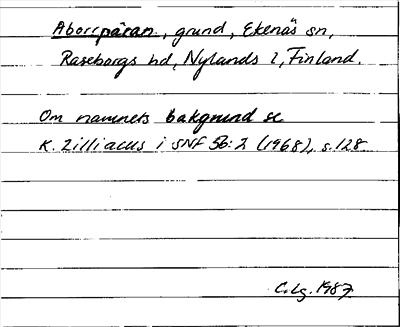 Aborrpäran, grund, Ekenäs sn,
Raseborgs hd, Nylands l, Finland.
Om namnets bakgrund se
K. Zilliacus i SNF 56:2 (1968), s. 128
C. Lg. 1987.